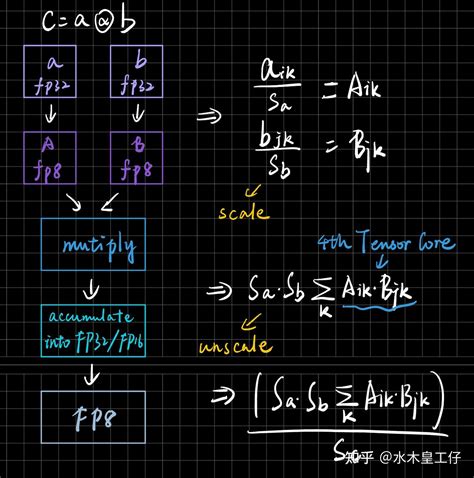 C = a @ b
a
fp32
b
fp32
A
fp8
B
fp8
mutiply
accumulate
into FP32/FP16
FP8
⇒ aik / Sa = Aik
bjk / Sb = Bjk
scale
4th Tensor Core
⇒ Sa·Sb ∑k Aik·Bjk
unscale
⇒ (Sa·Sb ∑k Aik·Bjk)
知乎 @水木皇工仔